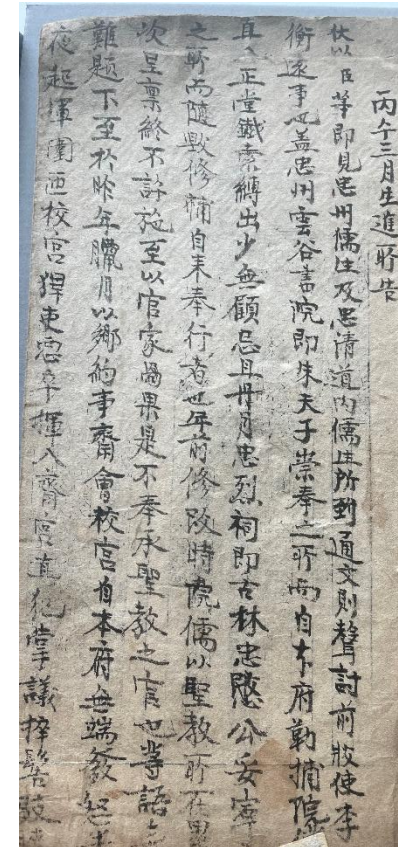 丙午三月生進所告
伏以臣等即見忠州儒生及忠清道內儒生所到通文則聲討前牧使李
衡逐事也盖忠州雲谷書院即朱夫子崇奉之所而自本府勒捕院
直入正堂鐵索縛出少無顧忌且丹月忠烈祠即古林忠愍公妥寧
之所而隨毁修補自来奉行者也年前修改時院儒以聖教所在
次呈禀終不許施至以官家過果是不奉承聖教之官也等語
難題下至於昨年臘月以鄉約事齋會校宮自本府無端發怒
夜起軍圍匝校宮猂吏悪卒揮入齋宮直犯掌議捽䯻